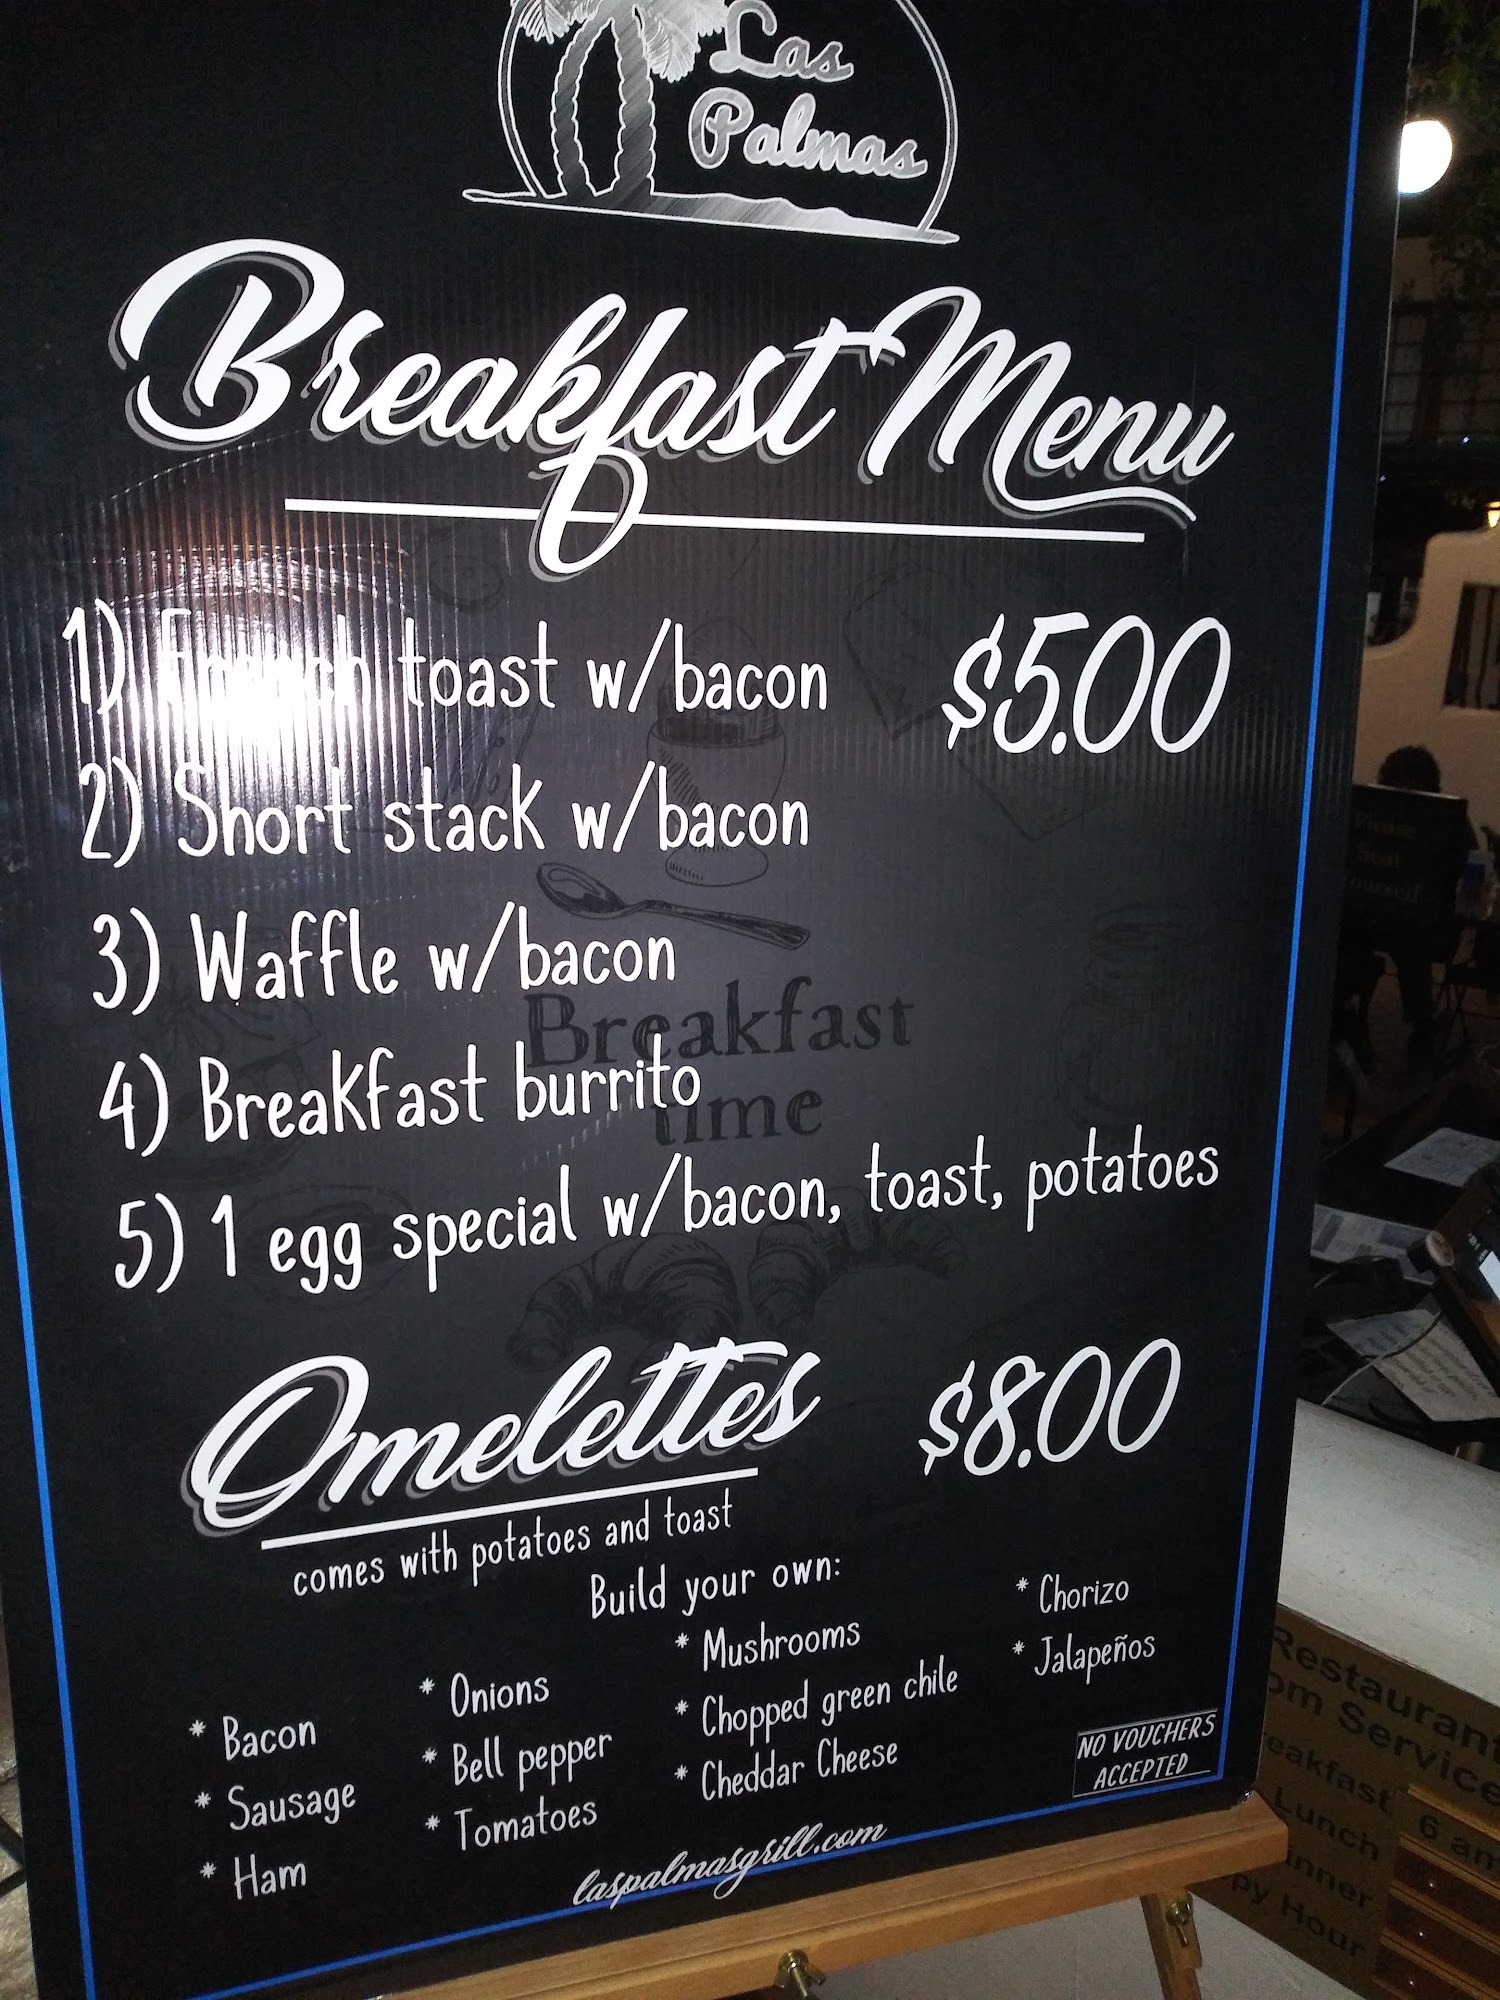 Las
Palmas
Breakfast Menu
1) French toast w/bacon $5.00
2) Short stack w/bacon
3) Waffle w/bacon
Breakfast
time
4) Breakfast burrito
5) 1 egg special w/bacon, toast, potatoes
Omelettes $8.00
comes with potatoes and toast
Build your own:
* Bacon
* Sausage
* Ham
* Onions
* Bell pepper
* Tomatoes
* Mushrooms
* Chopped green chile
* Cheddar Cheese
* Chorizo
* Jalapeños
NO VOUCHERS
ACCEPTED
laspalmasgrill.com
Please
Seat
Yourself
Restaurant
om Service
eakfast 6 am
Lunch
inner
py Hour